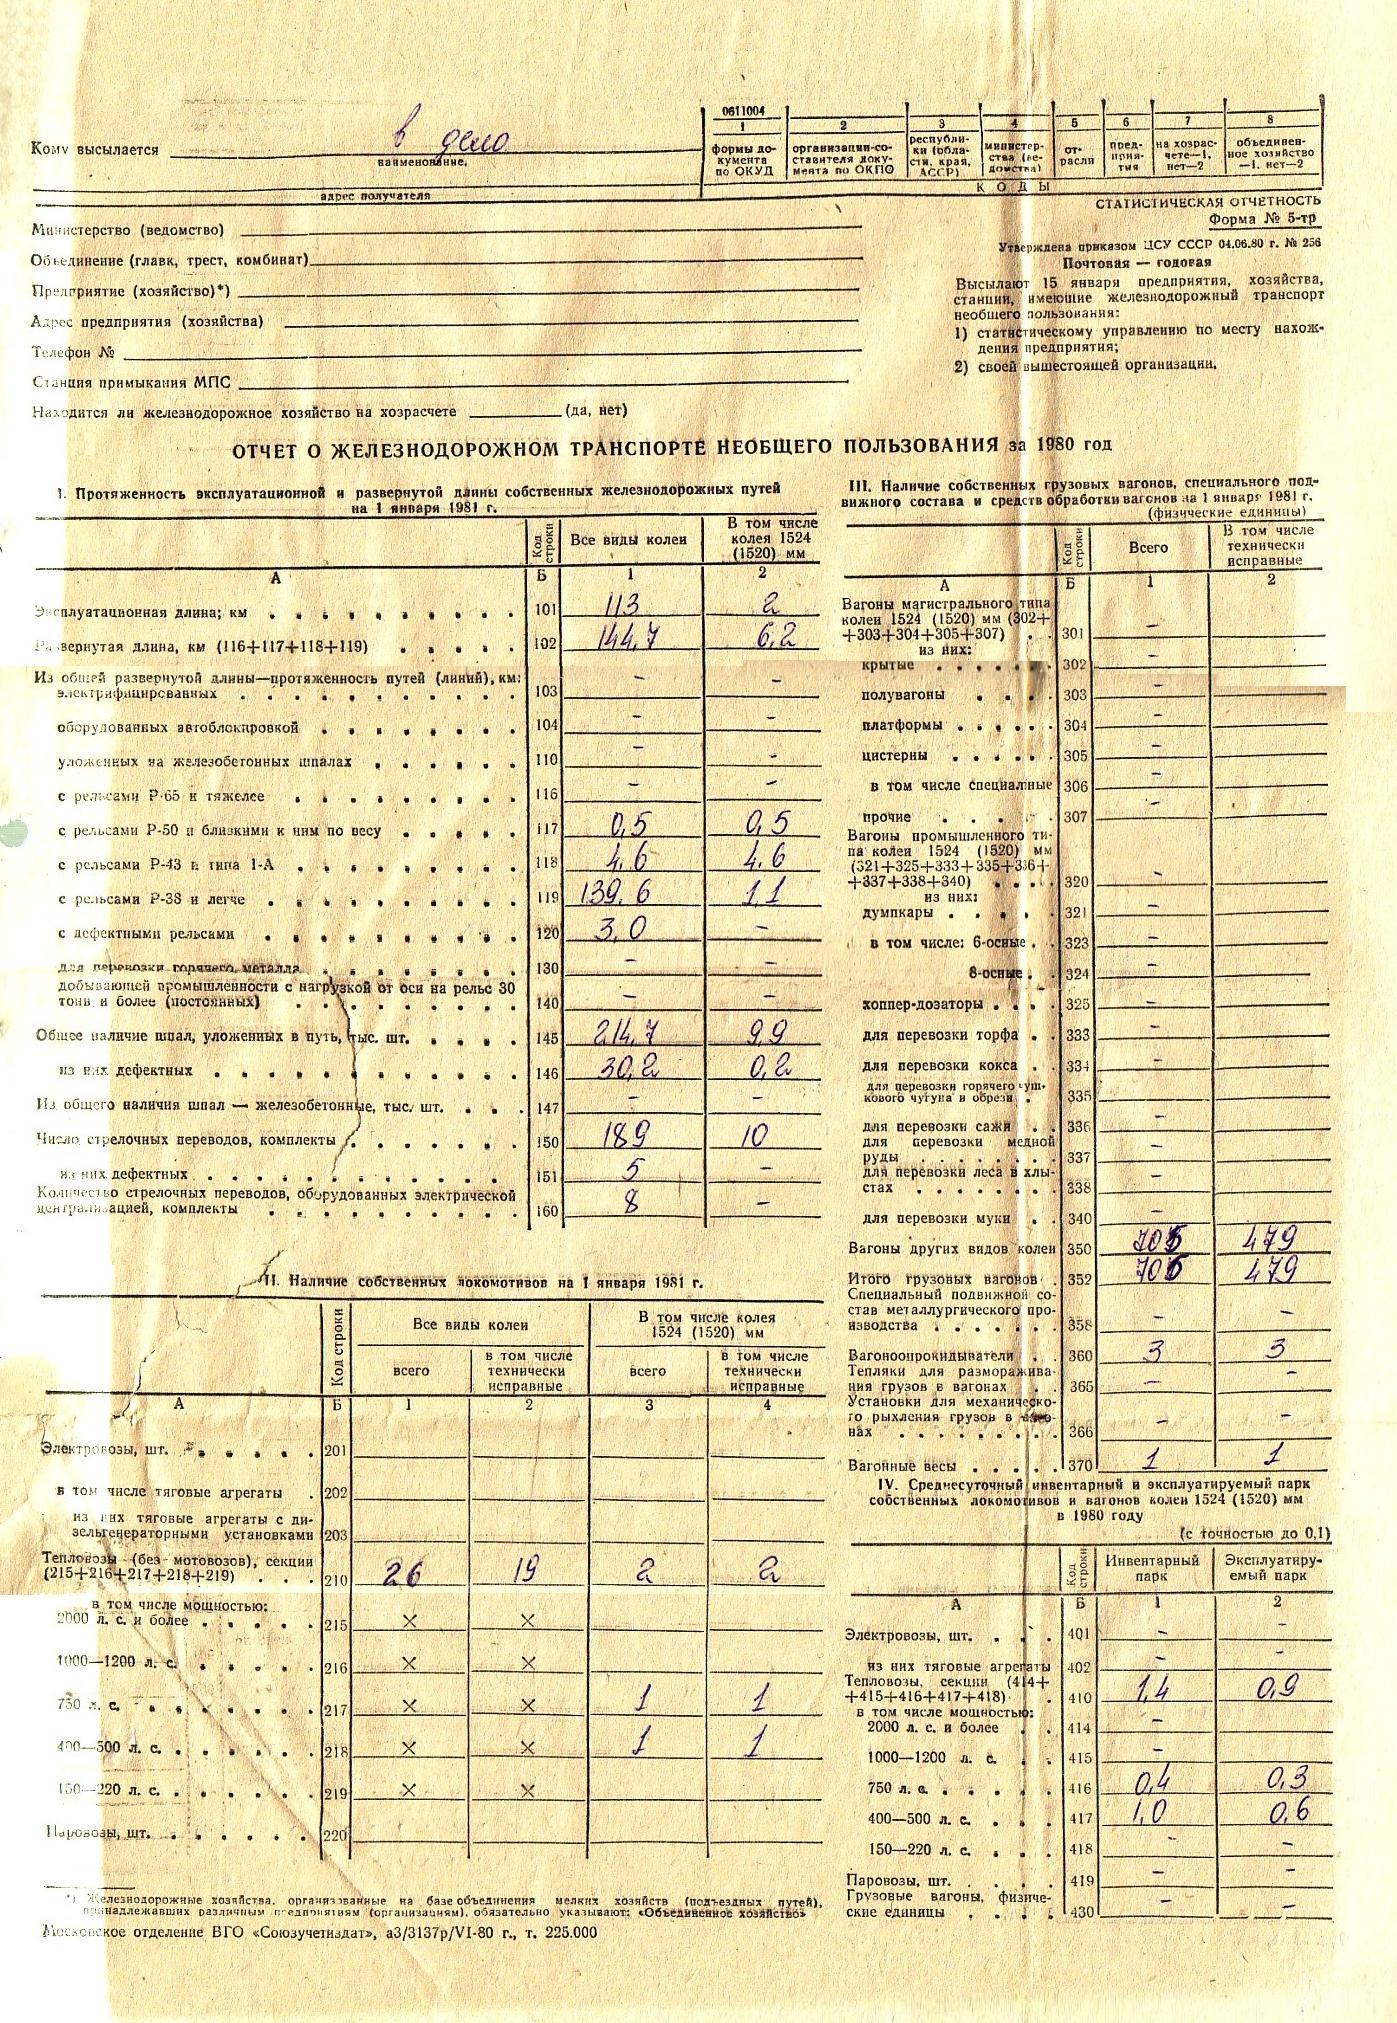 Кому высылается в дело
наименование,
адрес получателя
0611004
1 2 3 4 5 6 7 8
формы документа по ОКУД
организации-составителя документа по ОКПО
республики (области, края, АССР)
министерства (ведомства)
отрасли
предприятия
на хозрасчете—1, нет—2
объединенное хозяйство —1, нет—2
КОДЫ
СТАТИСТИЧЕСКАЯ ОТЧЕТНОСТЬ
Форма № 5-тр
Утверждена приказом ЦСУ СССР 04.06.80 г. № 256
Почтовая — годовая
Высылают 15 января предприятия, хозяйства,
станции, имеющие железнодорожный транспорт
необщего пользования:
1) статистическому управлению по месту нахож-
дения предприятия;
2) своей вышестоящей организации.
Министерство (ведомство)
Объединение (главк, трест, комбинат)
Предприятие (хозяйство)*)
Адрес предприятия (хозяйства)
Телефон №
Станция примыкания МПС
Находится ли железнодорожное хозяйство на хозрасчете (да, нет)
ОТЧЕТ О ЖЕЛЕЗНОДОРОЖНОМ ТРАНСПОРТЕ НЕОБЩЕГО ПОЛЬЗОВАНИЯ за 1980 год
I. Протяженность эксплуатационной и развернутой длины собственных железнодорожных путей
на 1 января 1981 г.
Код строки
Все виды колеи
В том числе колея 1524 (1520) мм
А Б 1 2
Эксплуатационная длина; км 101 113 2
Развернутая длина, км (116+117+118+119) 102 144,7 6,2
Из общей развернутой длины—протяженность путей (линий), км:
электрифицированных 103 – –
оборудованных автоблокировкой 104 – –
уложенных на железобетонных шпалах 110 – –
с рельсами Р-65 и тяжелее 116 – –
с рельсами Р-50 и близкими к ним по весу 117 0,5 0,5
с рельсами Р-43 и типа 1-А 118 4,6 4,6
с рельсами Р-38 и легче 119 139,6 1,1
с дефектными рельсами 120 3,0 –
для перевозки горячего металла 130 – –
добывающей промышленности с нагрузкой от оси на рельс 30
тонн и более (постоянных) 140 – –
Общее наличие шпал, уложенных в путь, тыс. шт. 145 214,7 9,9
из них дефектных 146 30,2 0,2
Из общего наличия шпал — железобетонные, тыс. шт. 147 – –
Число стрелочных переводов, комплекты 150 189 10
из них дефектных 151 5 –
Количество стрелочных переводов, оборудованных электрической
централизацией, комплекты 160 8 –
II. Наличие собственных локомотивов на 1 января 1981 г.
Код строки
Все виды колеи
В том числе колея 1524 (1520) мм
всего
в том числе технически исправные
всего
в том числе технически исправные
А Б 1 2 3 4
Электровозы, шт. 201
в том числе тяговые агрегаты 202
из них тяговые агрегаты с ди-
зельгенераторными установками 203
Тепловозы (без мотовозов), секции
(215+216+217+218+219) 210 26 19 2 2
в том числе мощностью:
2000 л. с. и более 215 × ×
1000—1200 л. с. 216 × ×
750 л. с. 217 × × 1 1
400—500 л. с. 218 × × 1 1
150—220 л. с. 219 × ×
Паровозы, шт. 220
*) Железнодорожные хозяйства, организованные на базе объединения мелких хозяйств (подъездных путей),
принадлежавших различным предприятиям (организациям), обязательно указывают: «Объединенное хозяйство»
Московское отделение ВГО «Союзучетиздат», а3/3137р/VI-80 г., т. 225.000
III. Наличие собственных грузовых вагонов, специального под-
вижного состава и средств обработки вагонов на 1 января 1981 г.
(физические единицы)
Код строки
Всего
В том числе технически исправные
А Б 1 2
Вагоны магистрального типа
колеи 1524 (1520) мм (302+
+303+304+305+307) 301 –
из них:
крытые 302 –
полувагоны 303 –
платформы 304 –
цистерны 305 –
в том числе специальные 306 –
прочие 307 –
Вагоны промышленного ти-
па колеи 1524 (1520) мм
(321+325+333+335+336+
+337+338+340) 320 –
из них:
думпкары 321 –
в том числе: 6-осные 323 –
8-осные 324 –
хоппер-дозаторы 325 –
для перевозки торфа 333 –
для перевозки кокса 334 –
для перевозки горячего чуш-
кового чугуна и обрези 335 –
для перевозки сажи 336 –
для перевозки медной
руды 337 –
для перевозки леса в хлы-
стах 338 –
для перевозки муки 340 –
Вагоны других видов колеи 350 705 479
Итого грузовых вагонов 352 705 479
Специальный подвижной со-
став металлургического про-
изводства 358 – –
Вагоноопрокидыватели 360 3 3
Тепляки для разморажива-
ния грузов в вагонах 365 – –
Установки для механическо-
го рыхления грузов в ваго-
нах 366 – –
Вагонные весы 370 1 1
IV. Среднесуточный инвентарный и эксплуатируемый парк
собственных локомотивов и вагонов колеи 1524 (1520) мм
в 1980 году
(с точностью до 0,1)
Код строки
Инвентарный парк
Эксплуатируемый парк
А Б 1 2
Электровозы, шт. 401 – –
из них тяговые агрегаты 402 – –
Тепловозы, секции (414+
+415+416+417+418) 410 1,4 0,9
в том числе мощностью:
2000 л. с. и более 414 –
1000—1200 л. с. 415 –
750 л. с. 416 0,4 0,3
400—500 л. с. 417 1,0 0,6
150—220 л. с. 418 – –
Паровозы, шт. 419 – –
Грузовые вагоны, физиче-
ские единицы 430 – –